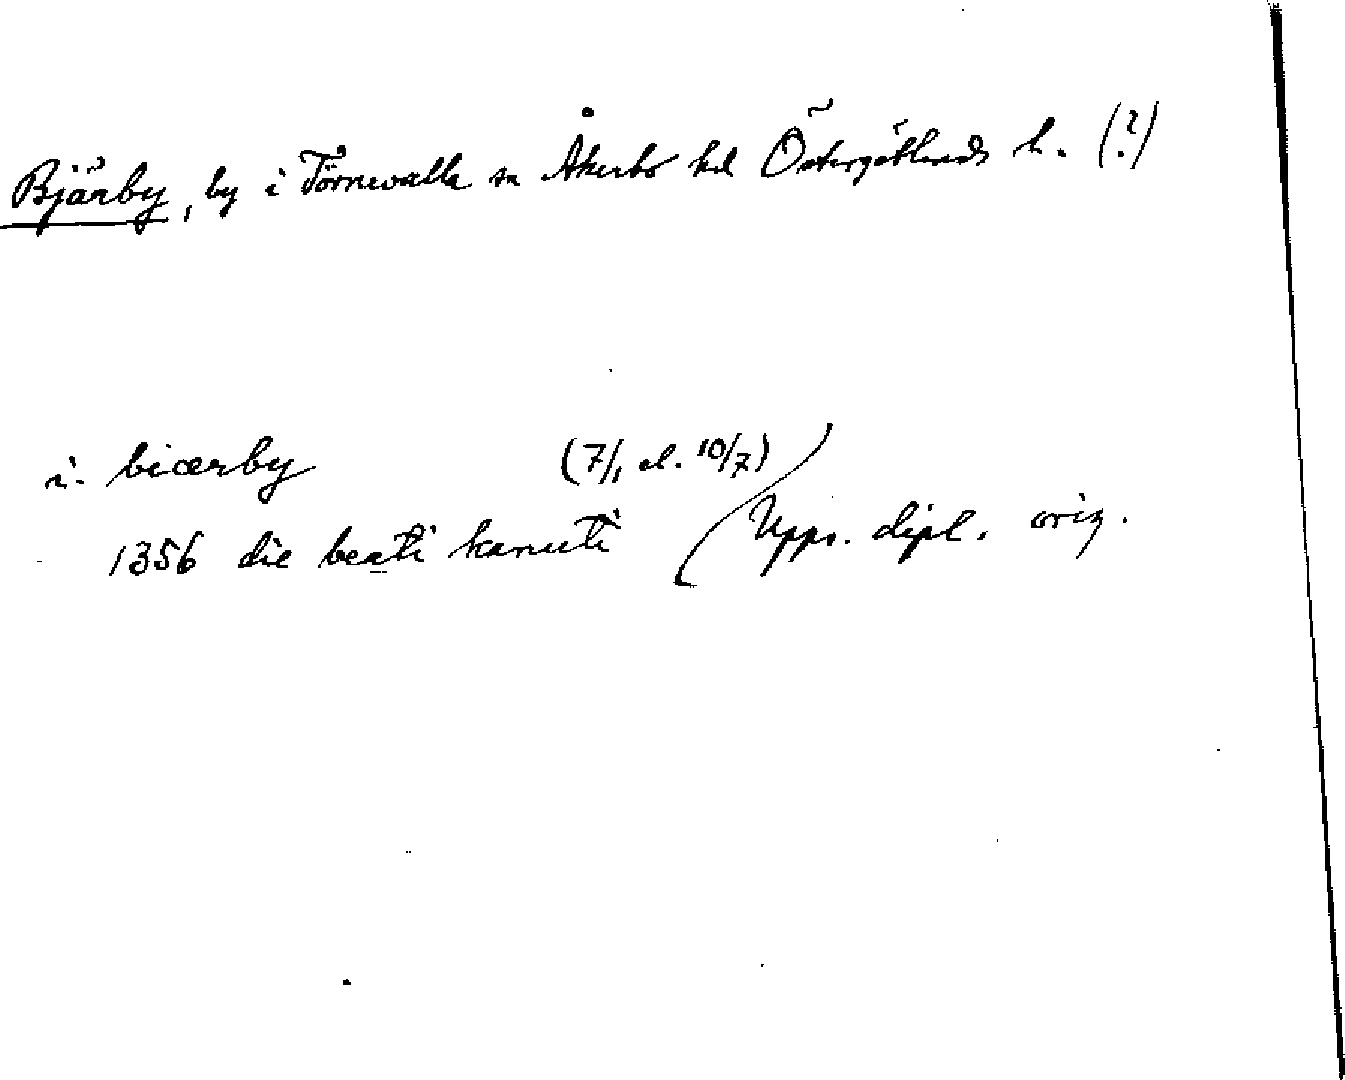 Bjärby, by i Törnevalla sn Åkerbo hd Östergötlands l. (?)
i. biærby (7/1 el. 10/7)
1356 die beati kanuti Upps. dipl. orig.